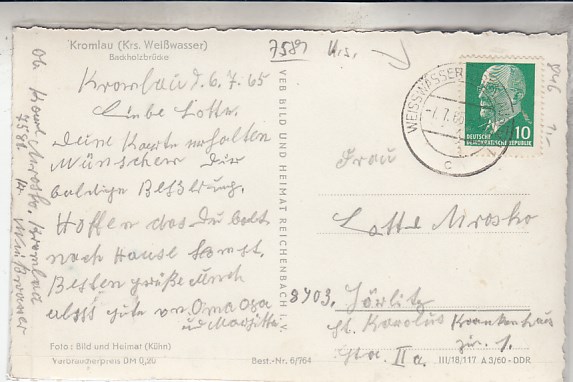 Kromlau (Krs. Weißwasser)
Backholzbrücke
7581 Krs.
Kromlau d. 6.7.65
Liebe Lotte.
Deine Karte erhalten
Wünschen Dir
baldige Beßerung.
Hoffen das Du balt
nach Hause komst.
Besten grüße Euch
alles gute von Oma Opa
und
Foto: Bild und Heimat (Kühn)
Verbraucherpreis DM 0,20
Best.-Nr. 6/764
VEB BILD UND HEIMAT REICHENBACH I. V.
Kromlau
7581 Weißwasser
WEISSWASSER
-7.7.65
c
10
DEUTSCHE
DEMOKRATISCHE REPUBLIK
Frau
Lotte Mrosko
8903. Görlitz
St. Karolus Krankenhaus
Sta. IIa. Zir. 1.
III/18/117 A 3/60 - DDR